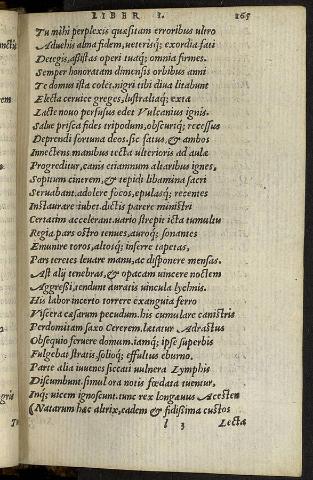 LIBER I. 165
Tu mihi perplexis quæsitam erroribus ultro
Aduehis alma fidem, ueterisq; exordia fati
Detegis, assistas operi tuaq; omnia firmes.
Semper honoratam dimensis orbibus anni
Te domus ista colet. nigri tibi diua litabunt
Electa ceruice greges, lustraliaq; exta
Lacte nouo perfusus edet Vulcanius ignis.
Salue prisca fides tripodum, obscuriq; recessus
Deprendi fortuna deos. sic fatus, & ambos
Innectens manibus tecta ulterioris ad aulæ
Progreditur, canis etiamnum altaribus ignes,
Sopitum cinerem, & tepidi libamina sacri
Seruabant. adolere focos, epulasq; recentes
Instaurare iubet. dictis parere ministri
Certatim accelerant. uario strepit icta tumultu
Regia. pars ostro tenues, auroq; sonantes
Emunire toros, altosq; inferre tapetas,
Pars teretes leuare manu, ac disponere mensas.
Ast alij tenebras, & opacam uincere noctem
Aggressi, tendunt auratis uincula lychnis.
His labor inserto torrere exanguia ferro
Viscera cæsarum pecudum. his cumulare canistris
Perdomitam saxo Cererem. lætatur Adrastus
Obsequio feruere domum. iamq; ipse superbis
Fulgebat stratis, solioq; effultus eburno.
Parte alia iuuenes siccati uulnera Lymphis
Discumbunt. simul ora notis fœdata tuentur,
Inq; uicem ignoscunt. tunc rex longæuus Acesten
(Natarum hæc altrix, eadem & fidissima custos
l 3 Lecta